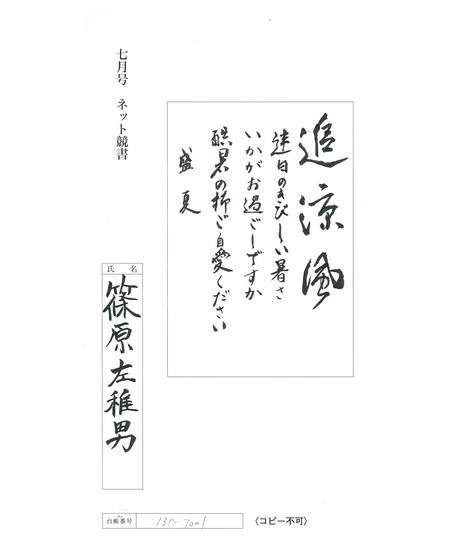 追涼風
連日のきびしい暑さ
いかがお過ごしですか
酷暑の折ご自愛ください
盛夏
七月号 ネット競書
氏名
篠原左稚男
台帳番号
〈コピー不可〉